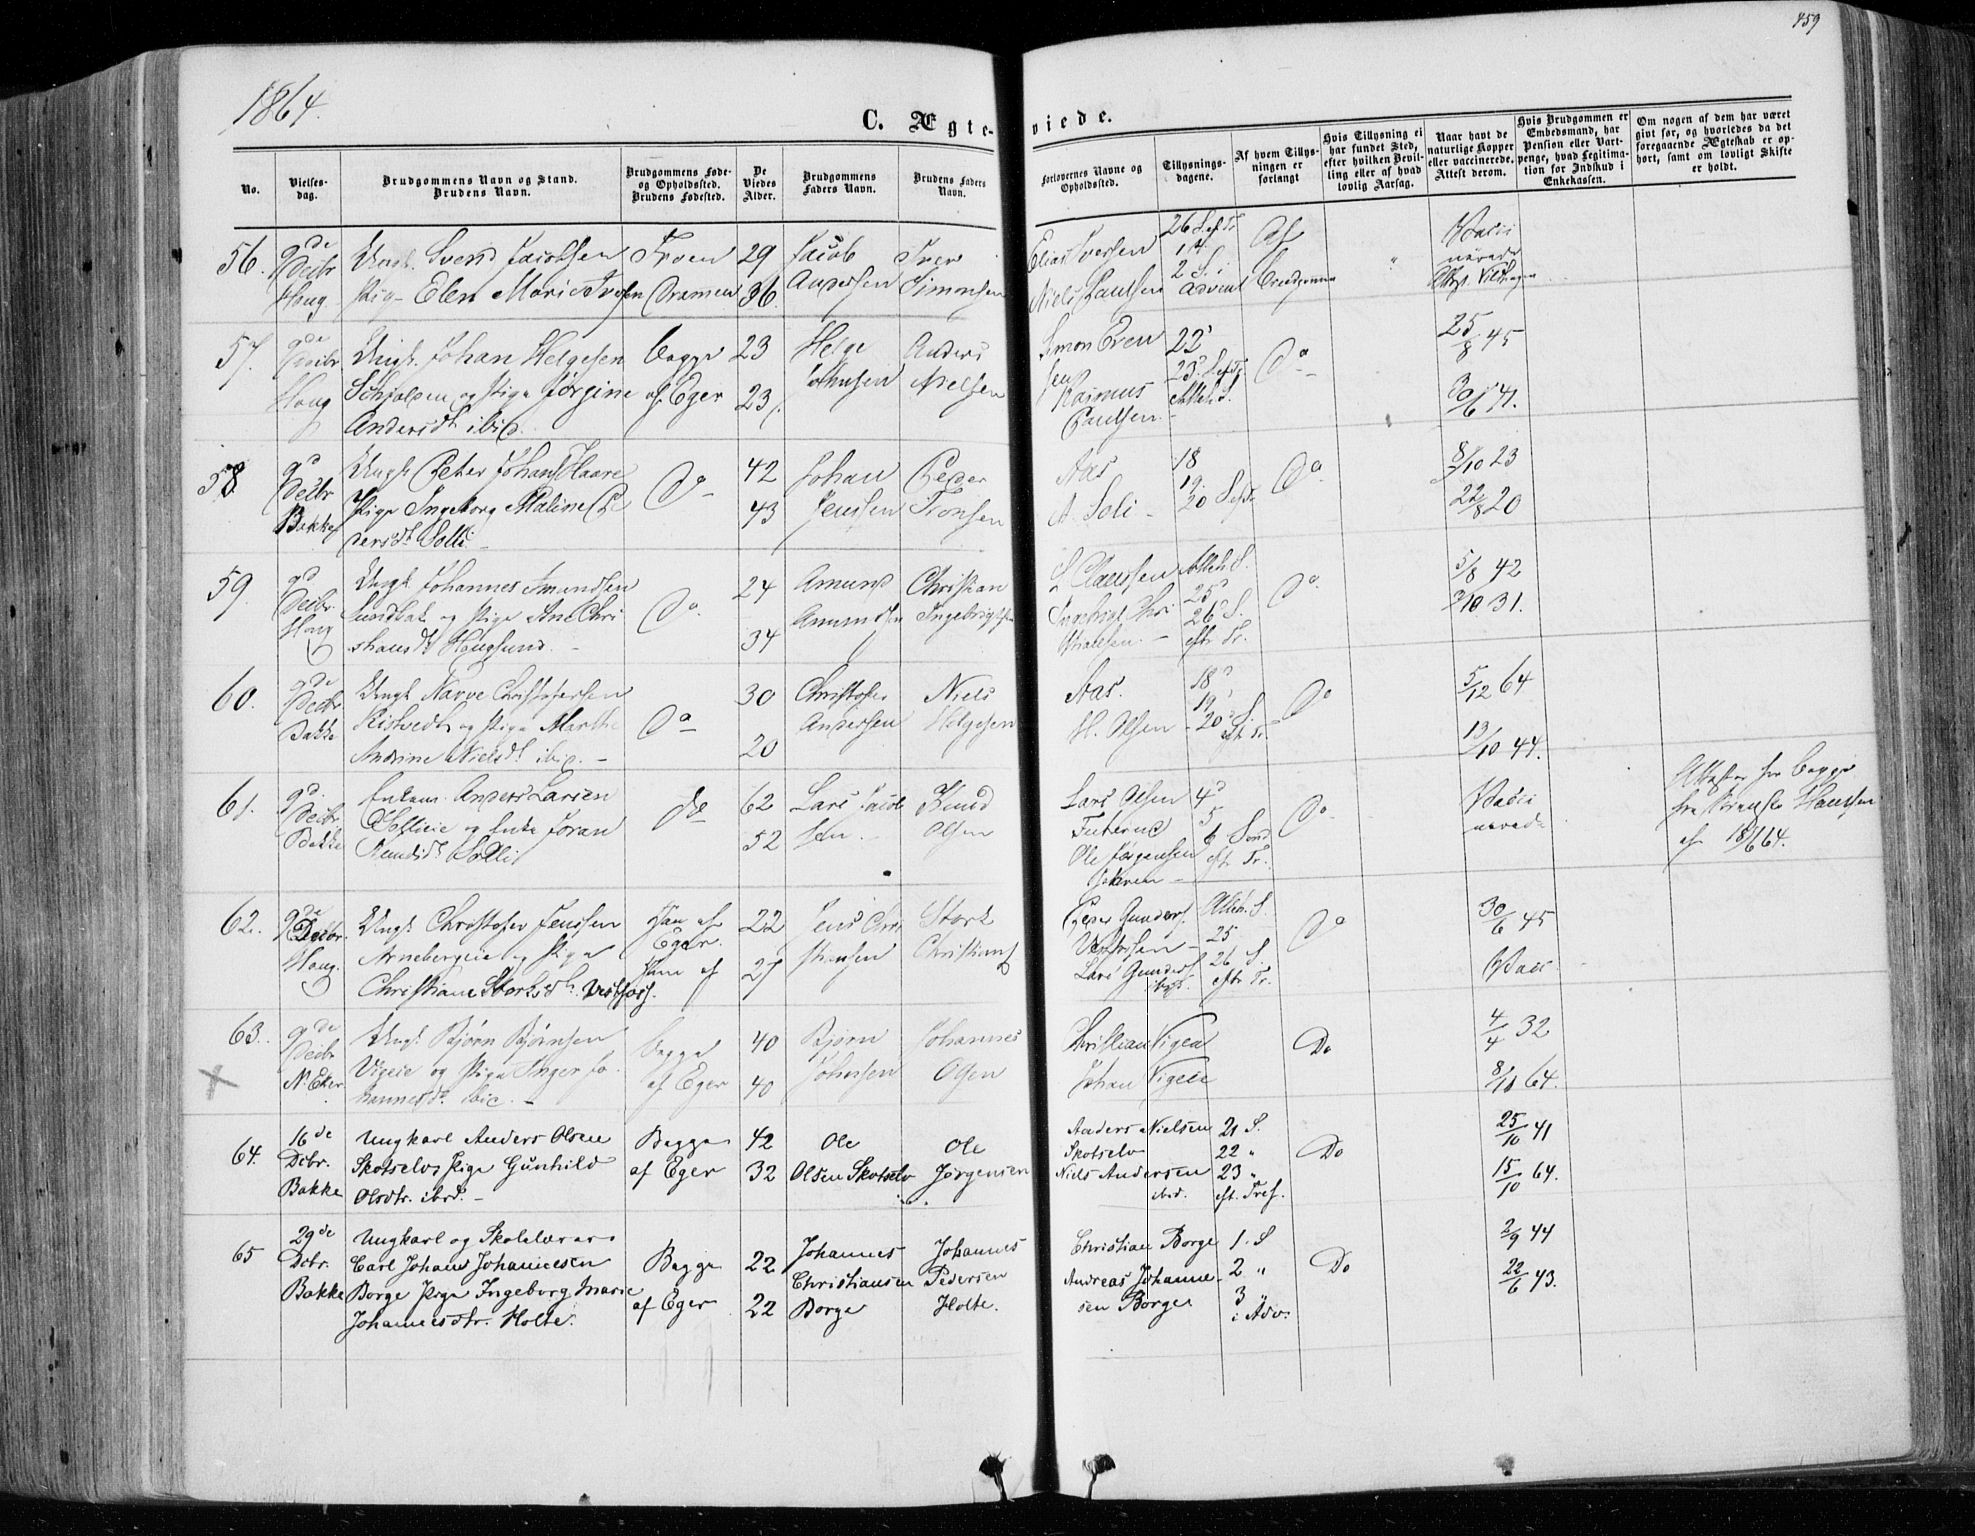 459
1864.
C. Ægteviede.
No.
Vielsesdag.
Brudgommens Navn og Stand.
Brudens Navn.
Brudgommens Føde-
og Opholdssted.
Brudens Fødested.
De
Viedes
Alder.
Brudgommens
Faders Navn.
Brudens Faders
Navn.
Forlovernes Navne og
Opholdssted.
Tillysnings-
dagene.
Af hvem Tillys-
ningen er
forlangt
Hvis Tillysning ei
har fundet Sted,
efter hvilken Bevil-
ling eller af hvad
lovlig Aarsag.
Naar havt de
naturlige Kopper
eller vaccinerede.
Attest derom.
Hvis Brudgommen er
Embedsmand, har
Pension eller Vart-
penge, hvad Legitima-
tion for Indskud i
Enkekassen.
Om nogen af dem har været
givt før, og hvorledes da det
foregaaende Ægteskab er op-
hørt, samt om lovligt Skifte
er holdt.
56. 9de Decbr Haug
Ungk. Svend Jacobsen
Pig- Elen Marie Iversen
Dramen
29
36
Jacob
Andersen
Iver
Simonsen
Elias Iversen
Niels Paulsen
2 S. i
Advent
Af
Brudgommen
57. 9de Decbr Haug
Ungk. Johan Helgesen
og Pige Jørgine
Andersdt ibid.
Begge
af Eger
23
23
Helge
Anders
Simon Even
sen
Rasmus
Paulsen
22
23
Do
25/8 45
30/6 41.
58. 9d Decbr Bakke
Ungk. Peter Johans Haare
Pige Ingeborg Maline Pe
dersdt Solli
Do
42
43
Johan
Jenssen
Peder
Aas
A. Soli
18
19
20
Do
8/10 23
22/8 20
59. 9d Decbr. Haug
Ungk Johannes Amundsen
Sundbak og Pige Ane Chri
stiansdt Haugsund.
Do.
24
34
Amund
Amundsen
Christian
Ingebrigtsen
25
26 S.
eftr Tr.
Do
5/8 42
31.
60. 9de Decbr Bakke
Ungk Narve Christofersen
og Pige Marthe
Andrine Nielsdt ibid.
Do
30
20
Christofer
Andersen
Niels
Helgesen
Aas.
H. Olsen
18
19
20 S.
eftr Tr.
Do
5/12 64
13/10 44.
61. 9d. Decbr. Bakke
Enkem. Anders Larsen
og Enke Joran
Solli
do
62
52
Lars Jacob
sen.
Knud
Olsen
Lars Olsen
Ole Jørgensen
4
5
6 Sønd
eftr Tr.
Do
Vacci
nerede
Attester for begge
fra Hanssen
af 18/6 64.
62. 9de Decbr. Haug.
Ungk Christofer Jenssen
Arnebergeie og Pige
Christiane Storksdt. Vestfoss.
Han af
Eger.
Hun af
22
27
Jens Chri
stiansen
Stork
Peder Gunders.
Lars Gunders.
25
26 S.
eftr Tr.
Do
30/6 45
Vacc
63. 9de Decbr N. Eker
Ungk Bjørn Bjørnsen
Vigeie og Pige Inger Jo
hannesdt. ibid.
Begge
af Eger
40
40
Bjørn
Johnsen
Johannes
Olsen
Christian Vigen
Johan Vigeie
Do
4/4 32
8/10 64.
64. 16de Dcbr. Bakke
Ungkarl Anders Olsen
Skotselv Pige Gunhild
Olsdtr. ibid.
Begge
af Eger
42
32
Ole
Olsen Skotselv
Ole
Jørgensen
Anders Nielsen
Skotselv
Niels Andersen
ibid.
21 S.
22 "
23 "
eft. Tref.
Do
25/10 41
15/10 64.
65 29de Dcbr. Bakke
Ungkarl og Skolelærer
Carl Johan Johannesen
Borge Pige Ingeborg Marie
Johannesdtr. Holte.
Begge
af Eger
22
22
Johannes
Christiansen
Borge
Johannes
Pedersen
Holte.
Christian Borge
Andreas Johanne-
sen Borge
1. S
2 "
3 "
i Adv.
Do
2/9 44
22/6 43.